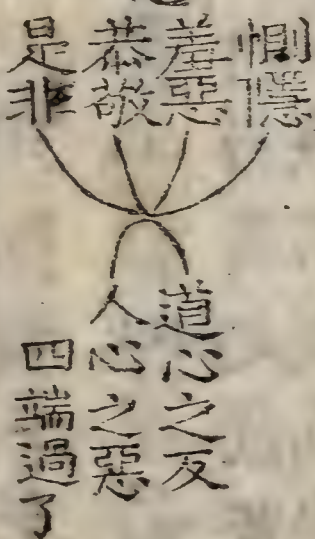 惻隱
羞惡
恭敬
是非
道心之反
人心之惡
四端過了